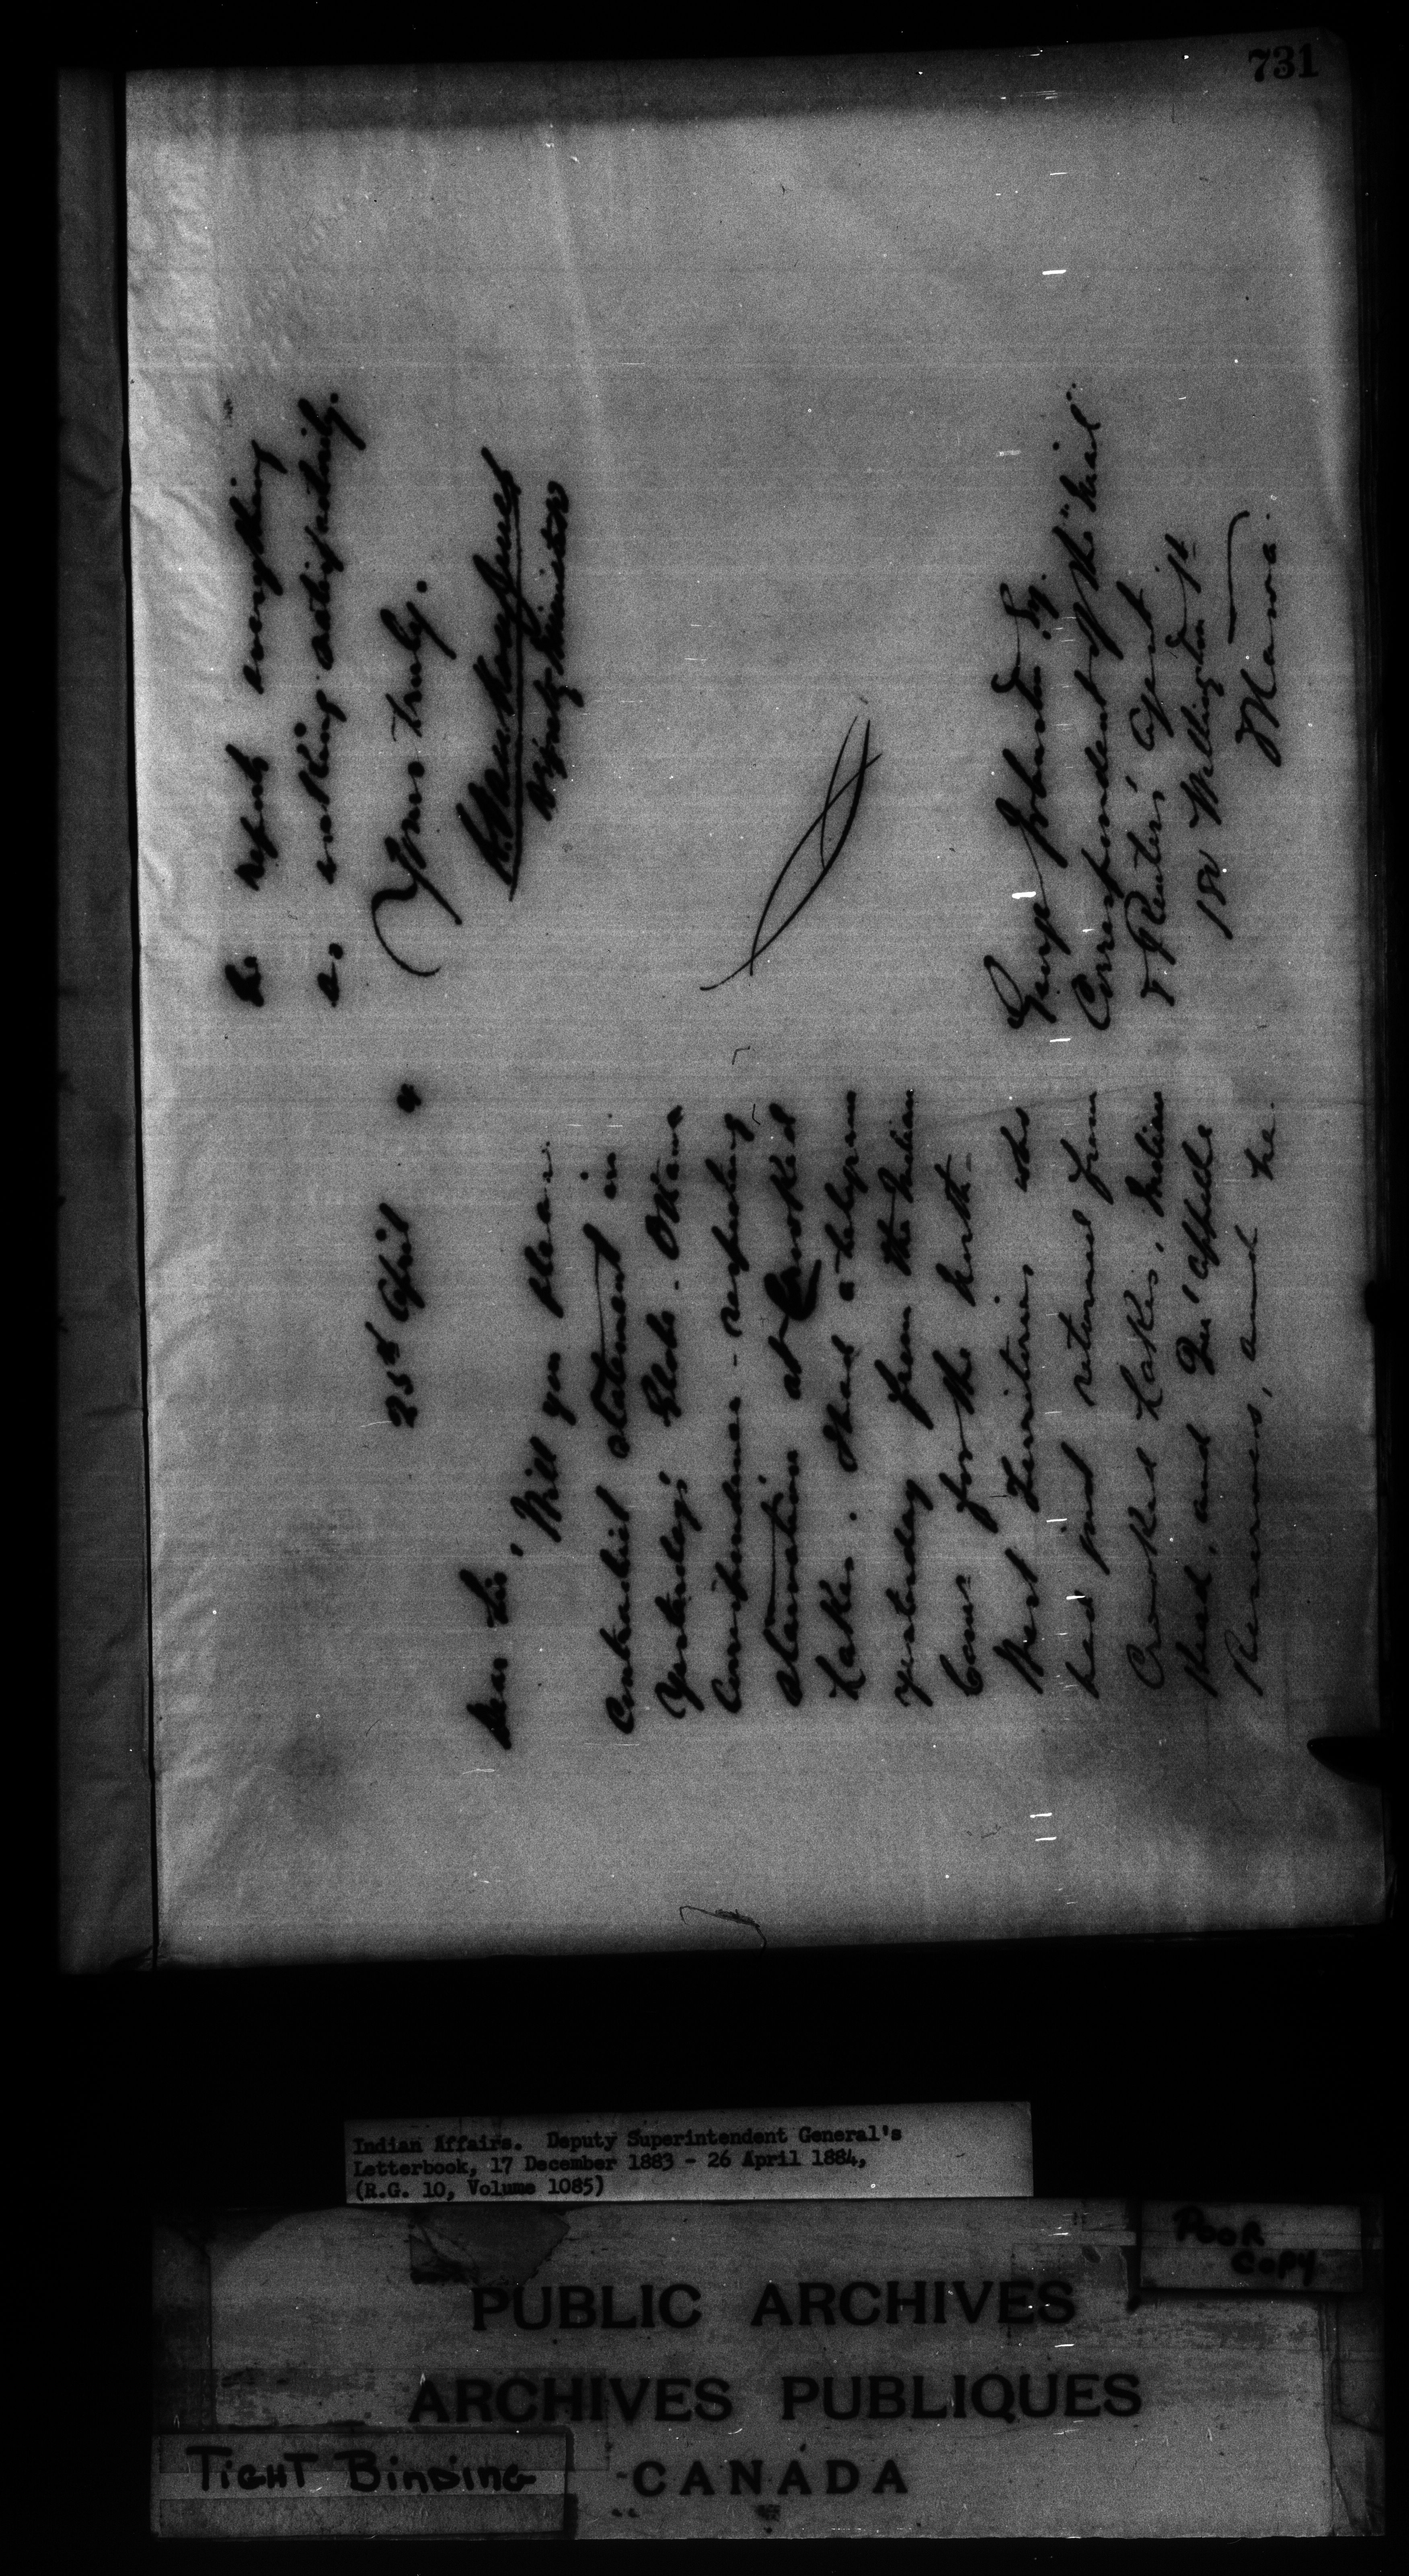 731
25th April 4
Dear Sir,
Will you please
contradict statement in
Yesterday's Globe - Ottawa
Correspondence - respecting
starvation at Crooked
Lakes. I had a telegram
yesterday from the Indian
Comr for the North-
West Territories, who
had just returned from
Crooked Lakes, Indian
Head, and Qu'Appelle
Reserves, and he
he reports everything
as working satisfactorily.
Yours truly.
L. Vankoughnet
Deputy Minister
George Johnson Esq.
Correspondent of the "Mail"
& Reuters' Agent
180 Wellington St
Ottawa.
Indian Affairs. Deputy Superintendent General's
Letterbook, 17 December 1883 - 26 April 1884,
(R.G. 10, Volume 1085)
POOR
COPY
PUBLIC ARCHIVES
ARCHIVES PUBLIQUES
CANADA
TIGHT BINDING